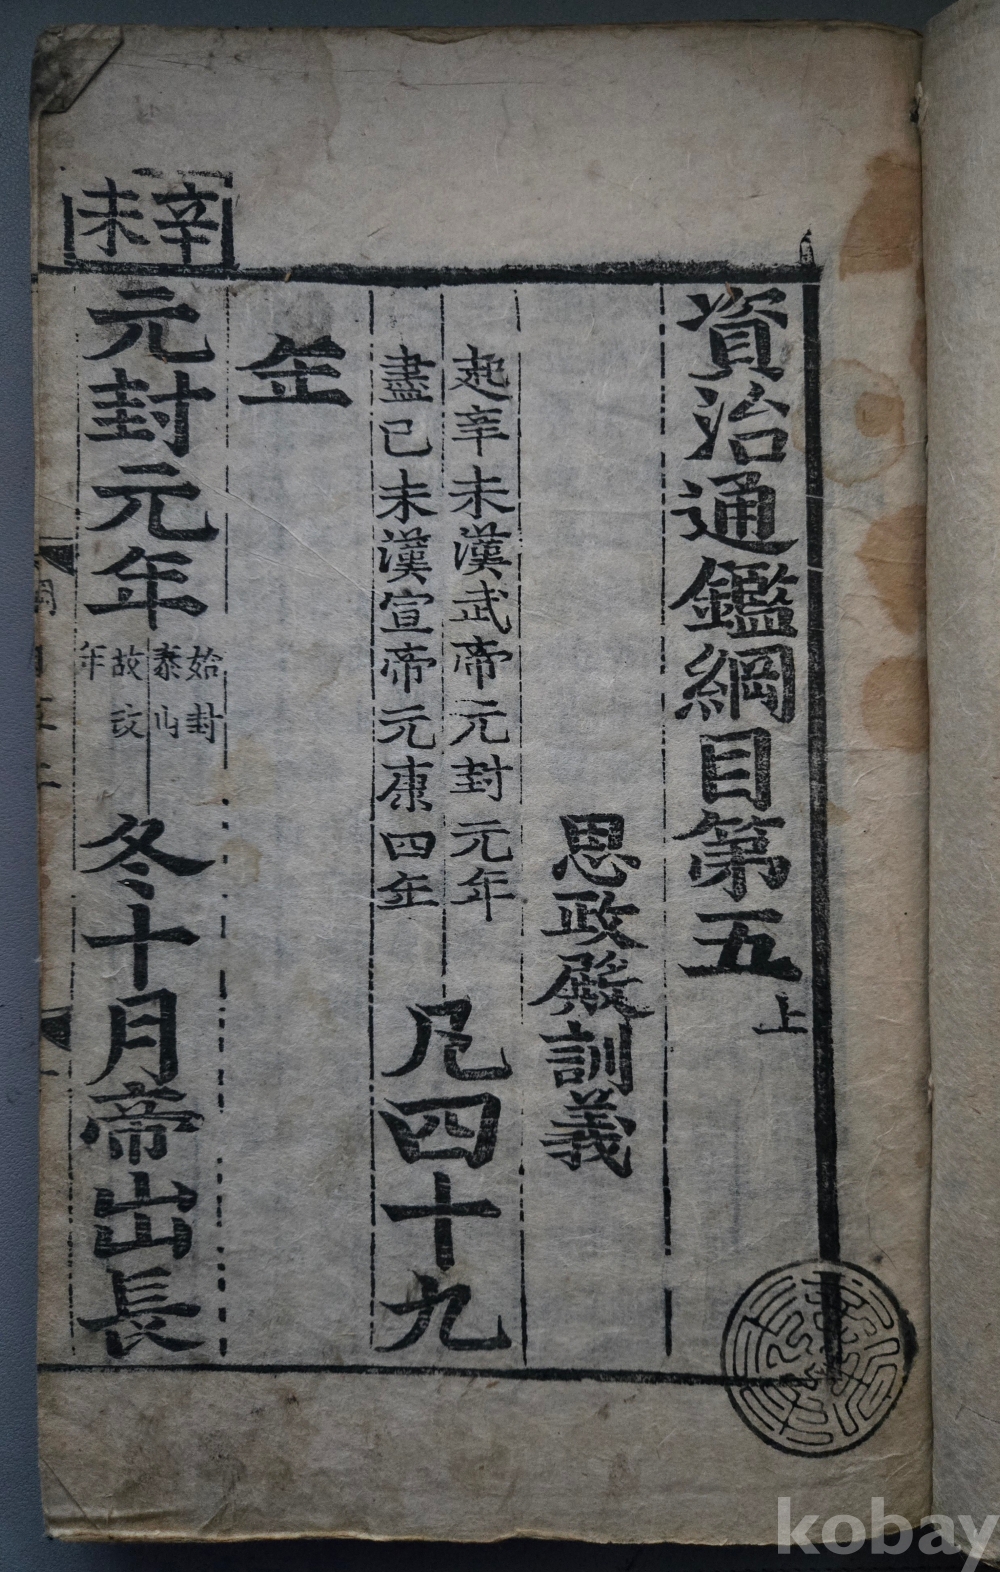 資治通鑑綱目第五上
思政殿訓義
起辛未漢武帝元封元年
盡己未漢宣帝元康四年
凡四十九
年
辛未
元封元年
始封
泰山
故改
年
冬十月帝出長
kobay